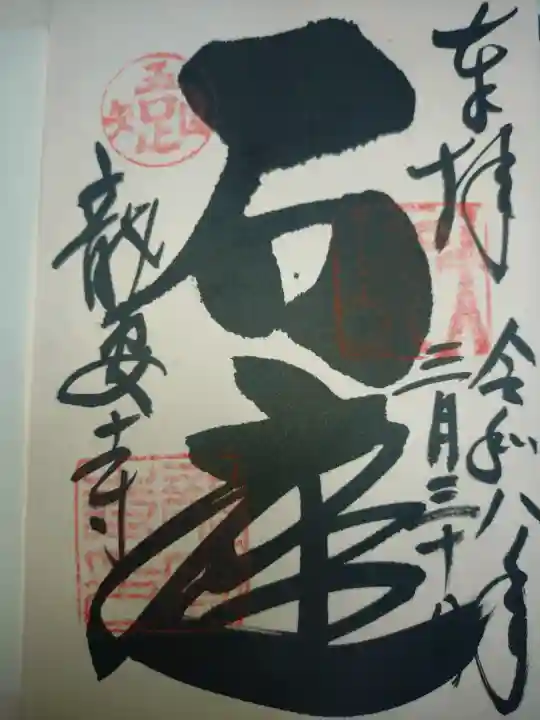 奉拝
令和八年
三月三十日
石庭
吾唯足知
龍安寺